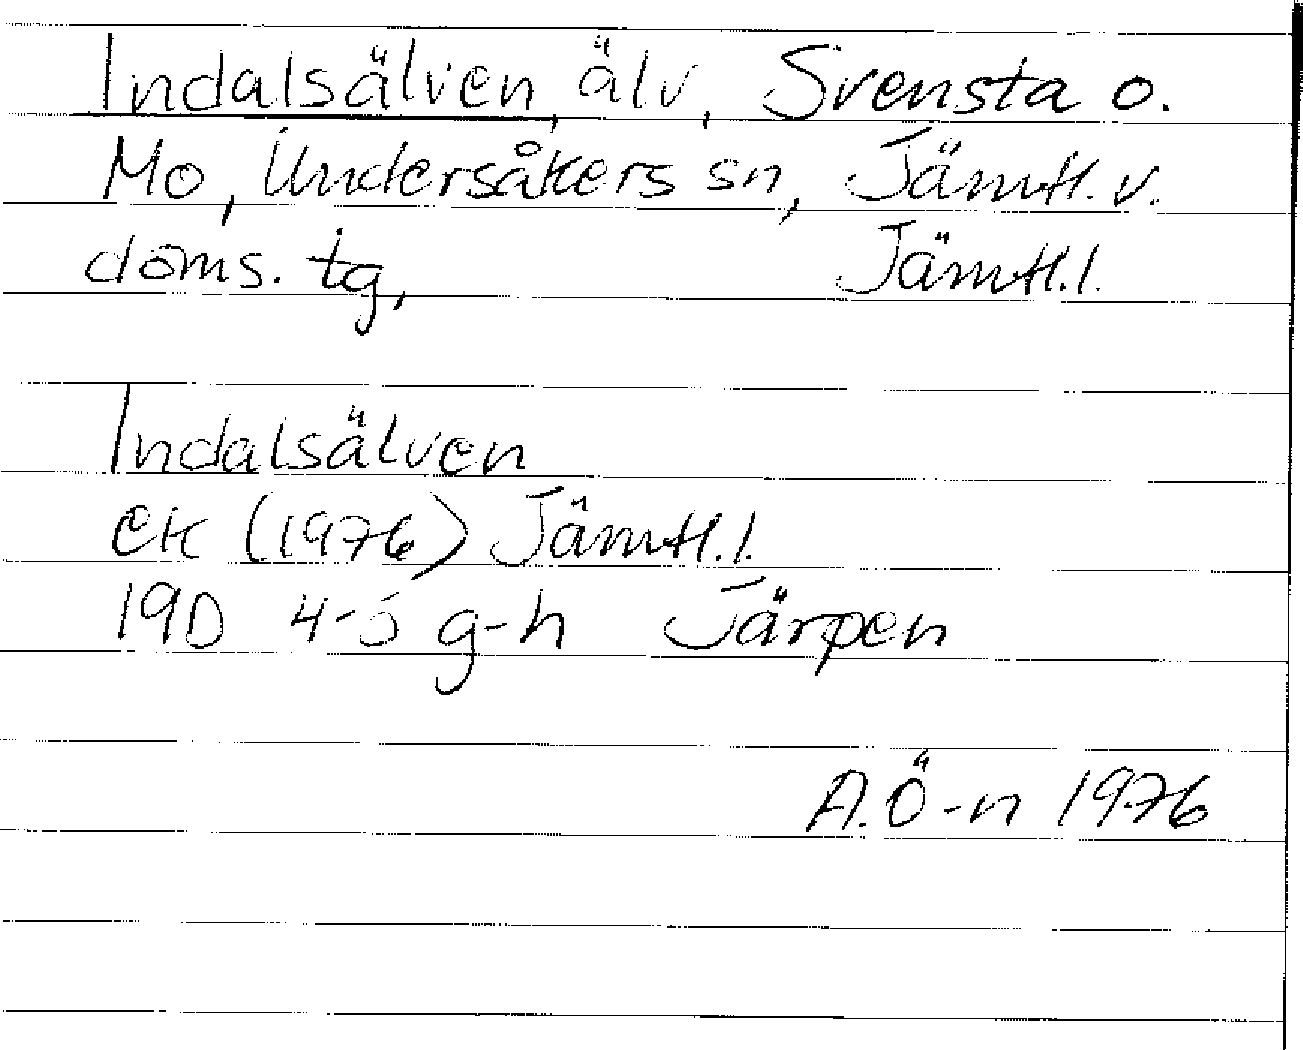 Indalsälven, älv, Svensta o.
Mo, Undersåkers sn, Jämtl. v.
doms. tg, Jämtl. l.
Indalsälven
EK (1976) Jämtl. l.
19D 4-5 g-h Järpen
A. Ö-n 1976